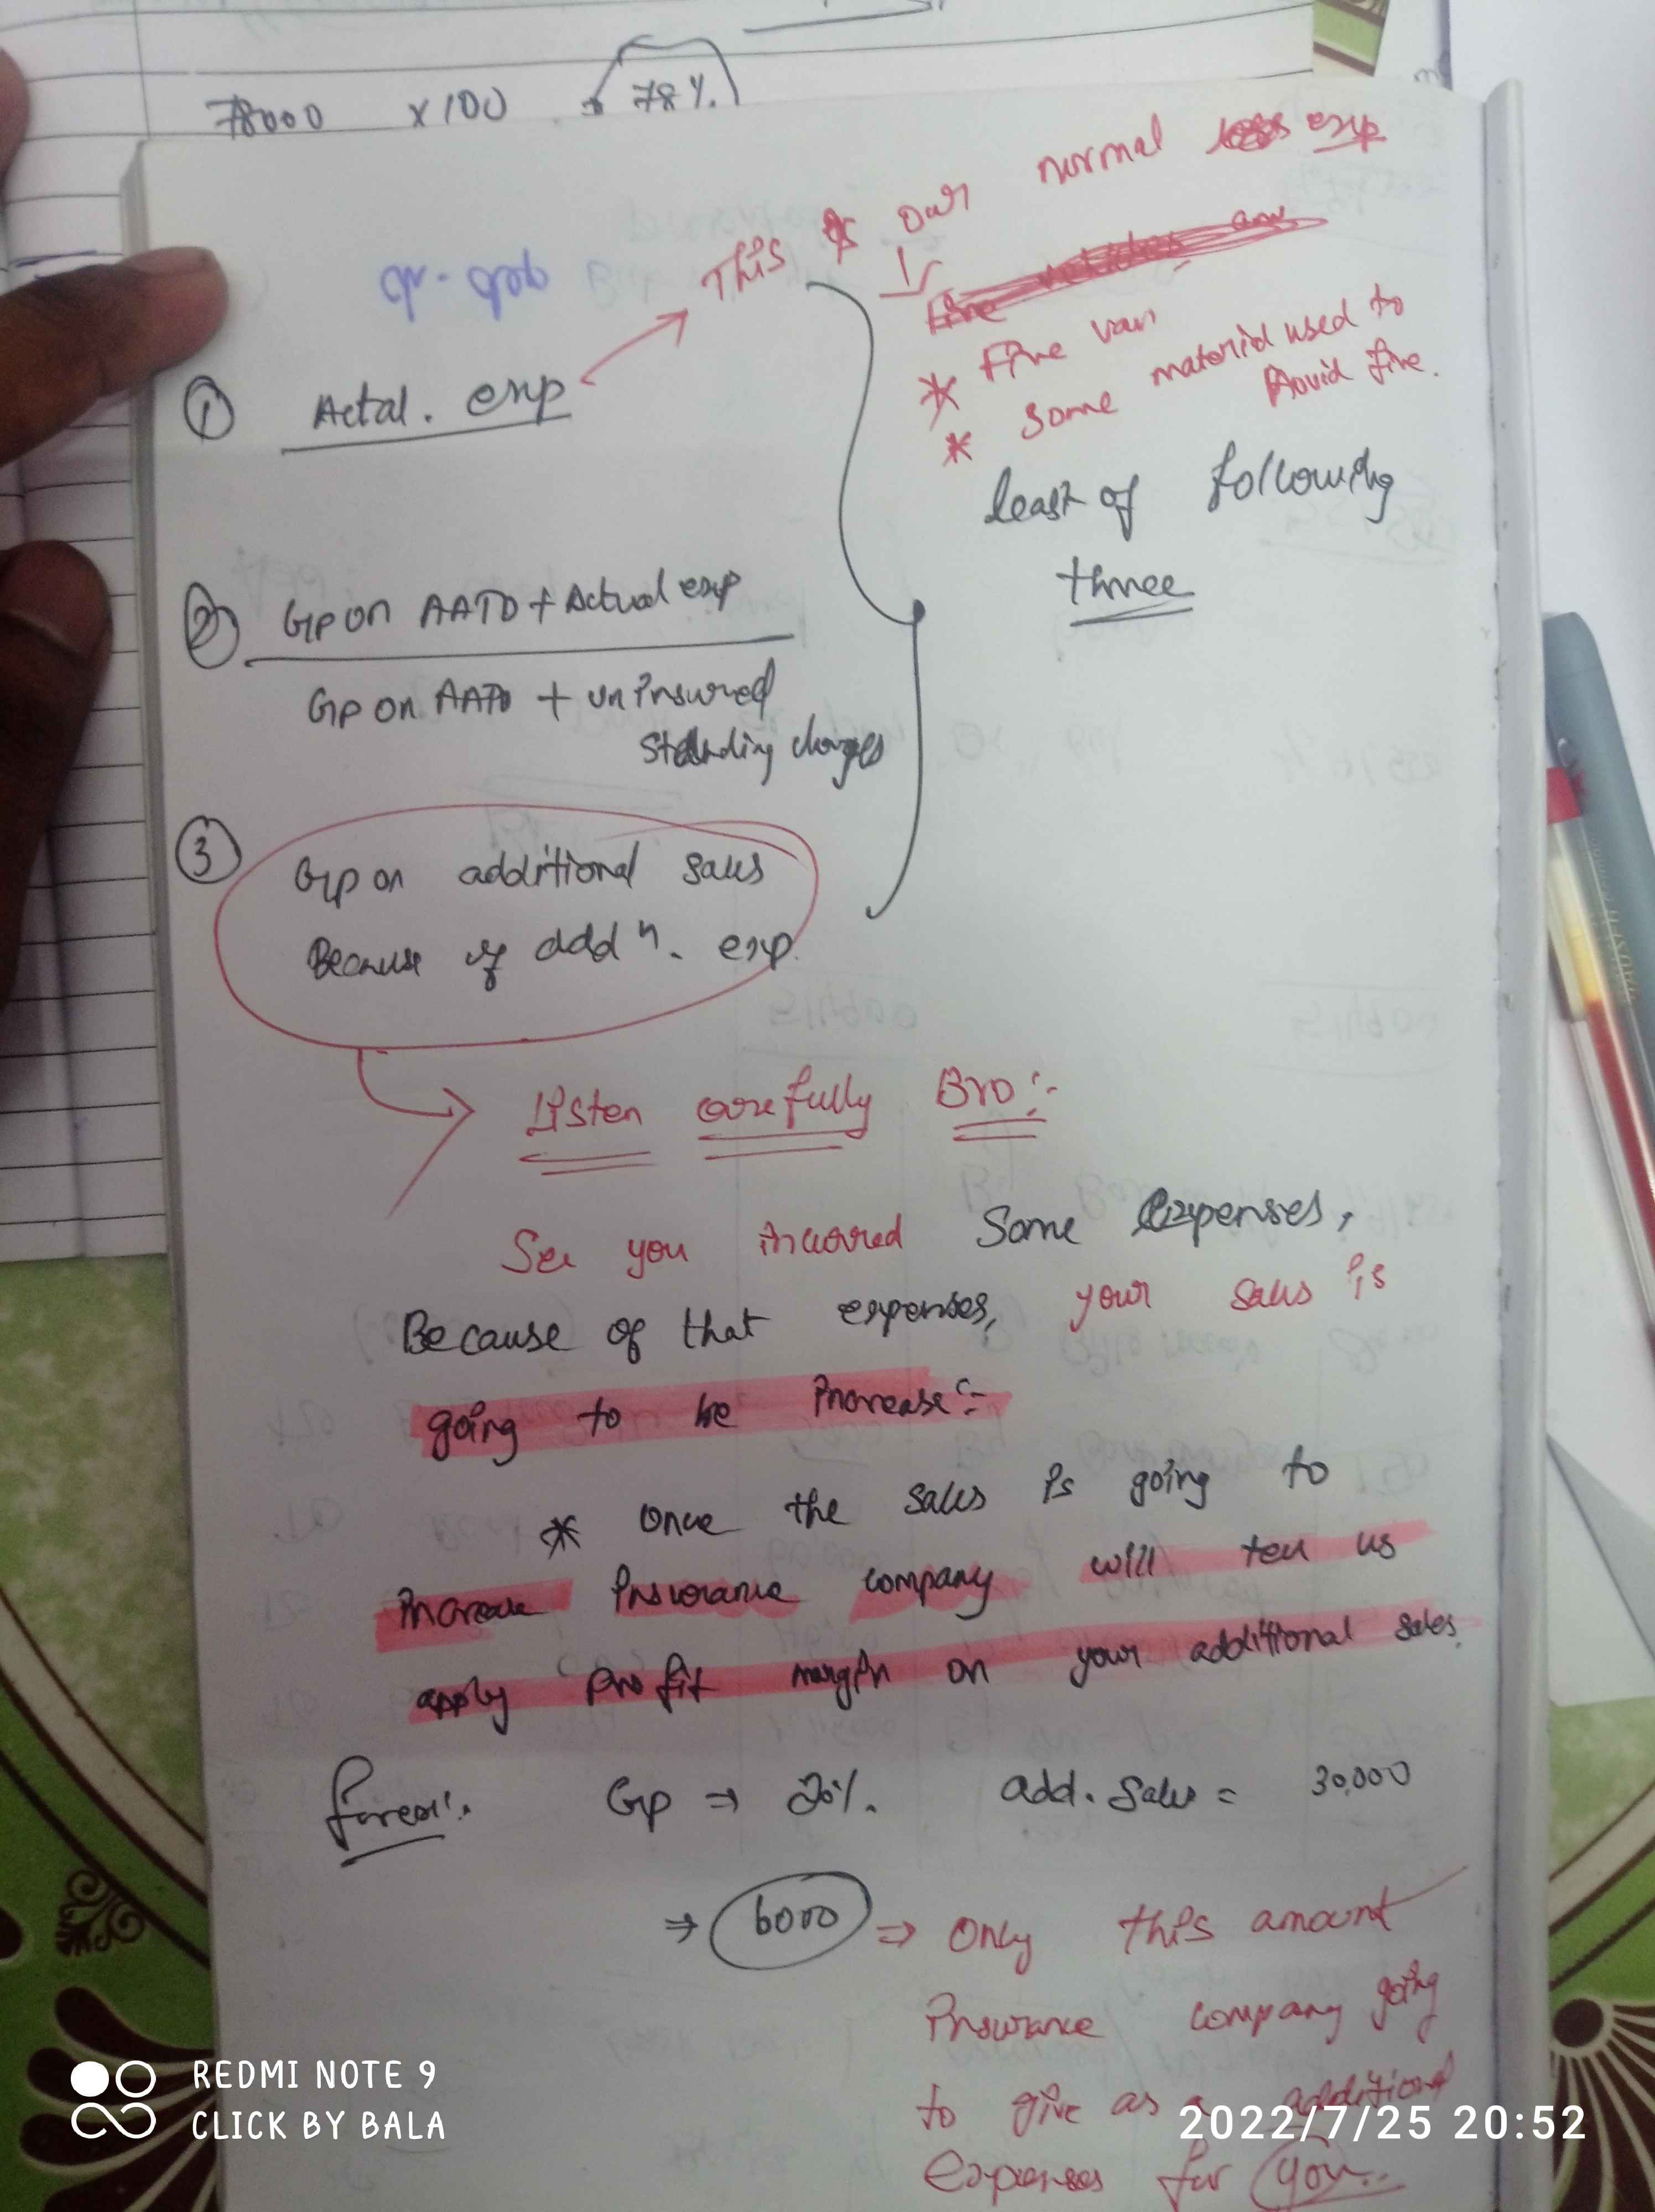 78000 x100 78%
This is our normal exp
* Fire van
* Some material used to
Avoid fire.
① Actal. exp
least of following
three
② GP on AATO + Actual exp
GP on AATO + uninsured
Standing charges
③ GP on additional sales
Because of addn. exp.
Listen carefully Bro:-
See you incurred Some Expenses,
Because of that expenses, your sales is
going to be increase:-
* Once the sales is going to
increase insurance company will tell us
apply profit margin on your additional sales.
GP ⇒ 20%. add. sales = 30,000
⇒ 6000 ⇒ Only this amount
insurance company going
to give as a additional
expenses for you..
REDMI NOTE 9
CLICK BY BALA
2022/7/25 20:52